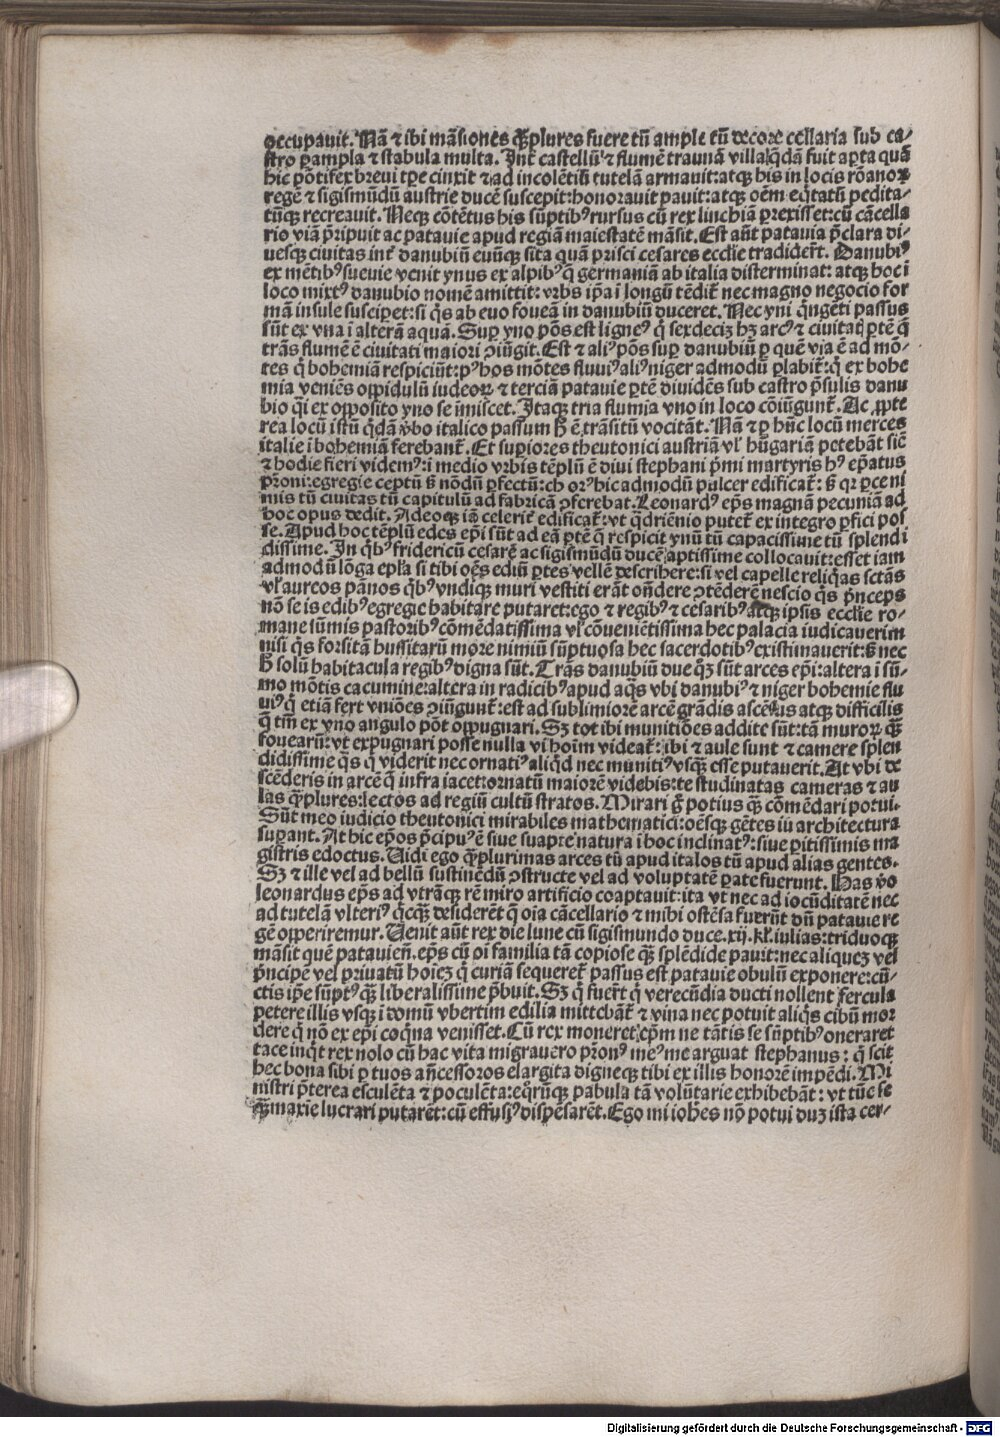 occupavit. Nã ⁊ ibi mãsiones q̃plures fuere tũ ample tũ decore cellaria sub ca⸗
stro ꝑampla ⁊ stabula multa. Int̃ castellũ ⁊ flumẽ traunã villa q̃dã fuit aꝑta quã
hic põtifex brevi tꝑe cinxit ⁊ ad incolẽtiũ tutelã armavit: atqꝫ his in locis rõanoꝝ
regẽ ⁊ sigismũdũ austrie ducẽ suscepit: honoravit pavit: atqꝫ oẽm eq̃tatũ pedita⸗
tũqꝫ recreavit. Neqꝫ cõtẽtus his sũptibꝰ rursus cũ rex linchiã ꝑrexisset: cũ cãcella
rio viã p̃ripuit ac patavie apud regiã maiestatẽ mãsit. Est aũt patavia p̃clara di⸗
vesqꝫ civitas int̃ danubiũ eunũqꝫ sita quã prisci cesares ecclie tradider̃t. Danubiꝰ
ex mẽtibꝰ suevie venit ynus ex alpibꝰ q̃ germaniã ab italia disterminat: atqꝫ hoc ĩ
loco mixtꝰ danubio nomẽ amittit: vrbs ip̃a ĩ longũ tẽdit̃ nec magno negocio for
mã insule susciꝑet: si q̃s ab euo foueã in danubiũ duceret. Nec yni q̃ngẽti passus
sũt ex vna ĩ alterã aquã. Suꝑ yno põs est ligneꝰ q̃ sexdeciꝫ hꝫ arcꝰ ⁊ civitatẽ ꝑtẽ q̃
trãs flumẽ ẽ civitati maiori ꝯiũgit. Est ⁊ aliꝰ põs suꝑ danubiũ ꝑ quẽ via ẽ ad mõ⸗
tes q̃ bohemiã respiciũt: pꝰ hos mõtes fluviꝰ aliꝰ niger admodũ ꝑlabit̃: q̃ ex bohe
mia veniẽs oppidulũ iudeoꝝ ⁊ terciã patavie ꝑtẽ dividẽs sub castro p̃sulis danu
bio q̃i ex opposito yno se ĩmiscet. Itaqꝫ tria flumia vno in loco cõiũgunt̃. Ac ꝓpte
rea locũ istũ q̃dã v̾bo italico passum h̃ ẽ trãsitũ vocitãt. Nã ⁊ ꝑ hũc locũ merces
italie ĩ bohemiã ferebant̃. Et suꝑiores theutonici austriã vl̃ hũgariã petebãt sic̃
⁊ hodie fieri videmꝰ: ĩ medio vrbis tẽplũ ẽ divi stephani p̃mi martyris hꝰ ep̃atus
p̃roni: egregie ceptũ s̃ nõdũ ꝑfectũ: chorꝰ hic admodũ pulcer edificat̃: s̃ qꝛ ꝑce ni
mis tũ civitas tũ capitulũ ad fabricã ꝯferebat. Leonardꝰ ep̃s magnã pecuniã ad
hoc opus dedit. Adeoqꝫ iã celerit̃ edificat̃: vt q̃driẽnio putet̃ ex integro ꝑfici pos
se. Apud hoc tẽplũ edes ep̃i sũt ad eã ꝑtẽ q̃ respicit ynũ tũ capacissime tũ splendi
dissime. In q̃bꝰ fridericũ cesarẽ ac sigismũdũ ducẽ aptissime collocavit: esset iam
admodũ lõga epl̃a si tibi oẽs ediũ ꝑtes vellẽ describere: si vel capelle reliq̃as sctãs
vl̃ aureos pãnos q̃bꝰ vndiqꝫ muri vestiti erãt oñdere ꝯtẽderẽ nescio q̃s p̃nceps
nõ se is edibꝰ egregie habitare putaret: ego ⁊ regibꝰ ⁊ cesaribꝰ atqꝫ ipsis ecclie ro⸗
mane sũmis pastoribꝰ cõmẽdatissima vl̃ cõueniẽtissima hec palacia iudicaverim
nisi q̃s forsitã hussitarũ more nimiũ sũptuosa hec sacerdotibꝰ existimaverit: s̃ nec
h̃ solũ habitacula regibꝰ digna sũt. Trãs danubiũ due qꝫ sũt arces ep̃i: altera ĩ sũ⸗
mo mõtis cacumine: altera in radicibꝰ apud aq̃s vbi danubiꝰ ⁊ niger bohemie flu
viꝰ q̃ etiã fert vniões ꝯiũgunt̃: est ad sublimiorẽ arcẽ grãdis ascẽsus atqꝫ difficilis
q̃ tm̃ ex vno angulo põt oppugnari. Sꝫ tot ibi munitiões addite sũt: tã muroꝝ q̃ꝫ
fovearũ: vt expugnari posse nulla vi hoĩm videat̃: ibi ⁊ aule sunt ⁊ camere splen
didissime q̃s q̃ viderit nec ornatiꝰ aliq̃d nec munitiꝰ vsqꝫ esse putaverit. At vbi de
scẽderis in arcẽ q̃ infra iacet: ornatũ maiorẽ videbis: testudinatas cameras ⁊ au
las q̃plures: lectos ad regiũ cultũ stratos. Mirari q̃ potius q̃ꝫ cõmẽdari potui.
Sũt meo iudicio theutonici mirabiles mathematici: oẽsqꝫ gẽtes ĩu architectura
suꝑant. At hic ep̃os p̃cipuꝰ ẽ sive suapte natura ĩ hoc inclinatꝰ: sive ꝑitissimis ma
gistris edoctus. Vidi ego q̃plurimas arces tũ apud italos tũ apud alias gentes.
Sꝫ ⁊ ille vel ad bellũ sustinẽdũ ꝯstructe vel ad voluptatẽ ꝑate fuerunt. Has v̾o
leonardus ep̃s ad vtrãqꝫ rẽ miro artificio coaptavit: ita vt nec ad iocũditatẽ nec
ad tutelã vlteriꝰ q̃cq̃ꝫ desiderẽt q̃ oĩa cãcellario ⁊ mihi ostẽsa fuerũt dũ patavie re
gẽ opperiremur. Venit aũt rex die lune cũ sigismundo duce .xij. kl̃. iulias: triduoqꝫ
mãsit quẽ patavieñ. ep̃s cũ oĩ familia tã copiose q̃ꝫ splẽdide pavit: nec aliqueꝫ vel
p̃ncipẽ vel privatũ hoĩeꝫ q̃ curiã sequeret̃ passus est patavie obulũ exponere: cũ⸗
ctis ip̃e sũptꝰ q̃ꝫ liberalissime p̃buit. Sꝫ q̃ fuer̃t q̃ verecũdia ducti nollent fercula
petere illis vsqꝫ ĩ domũ vbertim edilia mittebãt̃ ⁊ vina nec potuit aliq̃s cibũ mor
dere q̃ nõ ex ep̃i coq̃na venisset. Cũ rex moneret ep̃m ne tãtis se sũptibꝰ oneraret
tace inq̃t rex nolo cũ hac vita migravero p̃ronꝰ meꝰ me arguat stephanus: q̃ scit
hec bona sibi ꝑ tuos añcessoros elargita digneqꝫ tibi ex illis honorẽ impẽdi. Mi
nistri p̃terea esculẽta ⁊ poculẽta: eq̃rũqꝫ pabula tã volũtarie exhibebãt: vt tũc se
q̃ꝫmaxĩe lucrari putarẽt: cũ effusiꝰ dispẽsarẽt. Ego mi iohẽs nõ potui duꝫ ista cer⸗
Digitalisierung gefördert durch die Deutsche Forschungsgemeinschaft - DFG